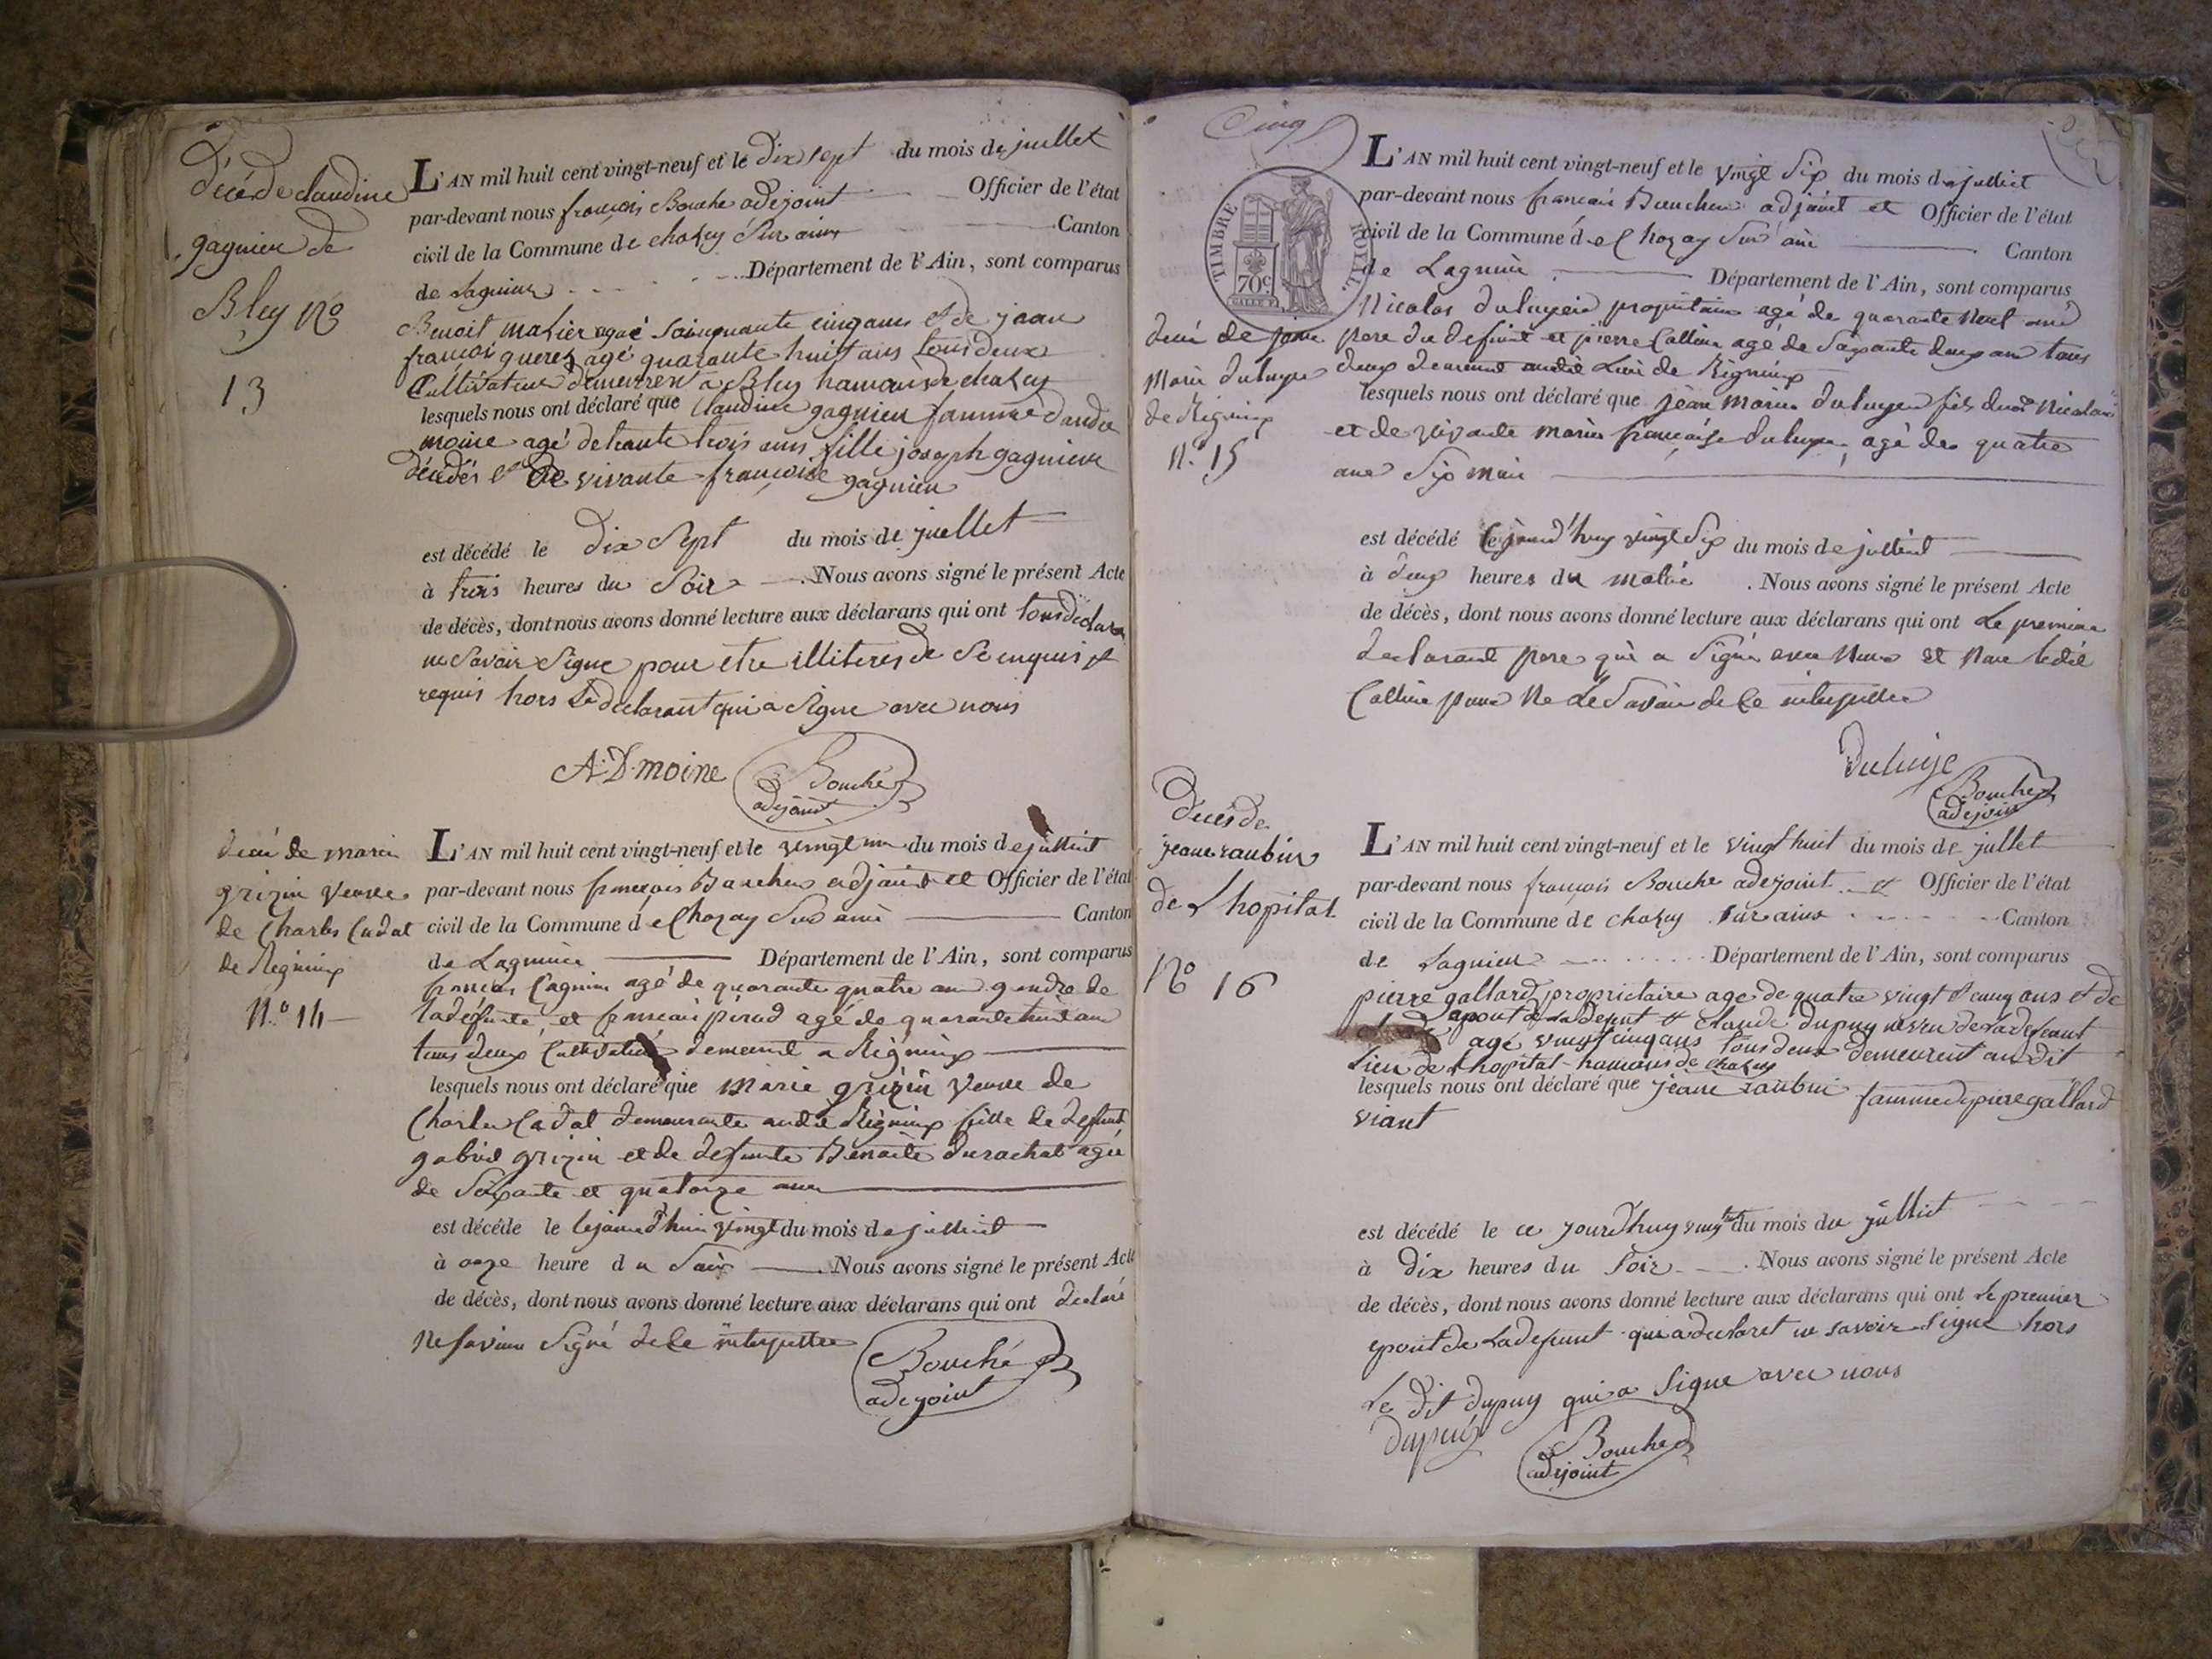 Décés de claudine
gagnieu de
Bley No
13
L'AN mil huit cent vingt-neuf et le dix sept du mois de juillet
par-devant nous françois Bouche adejoint Officier de l'état
civil de la Commune de chazey sur ains Canton
de Lagnieu Département de l'Ain, sont comparus
Benoit mahier agaé soinquante cinq ans et de jean
françois querez agé quarante huit ans tous deux
Cultivateur demeurent a Bley hamauis de chazey
lesquels nous ont déclaré que Claudine gagnieu famme dandre
moine agé detrante trois ans fille joseph gagnieu
décédés et de vivante françoise gagnieu
est décédé le dix Sept du mois de juellet
à trois heures du Soir Nous avons signé le présent Acte
de décès, dont nous avons donné lecture aux déclarans qui ont tous déclara
ne Savoir Signe pour etre illiteres de Se enquis et
requis hors Le declarant qui a Signe avec nous
A.D. moine Bouché
adejoint
décé de marie
grizin veuve
de Charles Cadat
de Rigneux
N.o 14
L'AN mil huit cent vingt-neuf et le vingt un du mois de juilliet
par-devant nous françois Bouchez adjoint et Officier de l'état
civil de la Commune de Chazay Sur ain Canton
de Lagnieu Département de l'Ain, sont comparus
françois Cagnin agé de quarante quatre an gendre de
ladéfunte, et françois pérod agé de quarante huit ans
tous deux Cultivateur demeurant a Rigneux
lesquels nous ont déclaré que marie grizin veuve de
Charles Cadat demeurante audit Rigneux fille de defunt
gabriel grizin et de defunte Benoite durochat agée
de Soixante et quatorze ans
est décédé le lejourd'hui vingt du mois de juilliet
à onze heure du Soir Nous avons signé le présent Acte
de décès, dont nous avons donné lecture aux déclarans qui ont declaré
Ne savoir Signé de Ce interpeller
Bouché
adejoint
Cinq
TIMBRE ROYAL
70c.
L'AN mil huit cent vingt-neuf et le vingt Six du mois de juilliet
par-devant nous françois Bouchez adjoint et Officier de l'état
civil de la Commune de Chozay Sur ain Canton
de Lagnieu Département de l'Ain, sont comparus
Nicolas duluye propriétaire agé de quarante Neuf ans
pere du defunt et pierre Collin agé de Soixante deux an tous
deux demeurant audit Lieu de Rigneux
décé de jean
Marie duluye
de Rigneux
N.o 15
lesquels nous ont déclaré que jean marie duluye fils dudit Nicolas
et de vivante marie françoise duluye agé de quatre
ans Six mois
est décédé Cejourd'huy vingt Six du mois de juilliet
à deux heures du matin . Nous avons signé le présent Acte
de décès, dont nous avons donné lecture aux déclarans qui ont Le premier
declarant pere qui a Signé avec Nous et Non ledit
Collin pour Ne Le Savoir de Ce interpeller
Duluye
Bouche
adejoin
Décés de
jeane raubin
de Lhopital
No 16
L'AN mil huit cent vingt-neuf et le vingt huit du mois de jullet
par-devant nous françois Bouche adejoint et Officier de l'état
civil de la Commune de chazey sur ains Canton
de Lagnieu Département de l'Ain, sont comparus
pierre gallard proprietaire age de quatre vingt et cinq ans et de
epout de La defunt et Claude dupuy neveu de La defeant
agé vingt cinq ans tous deux demeurent au dit
Lieu de Lhopital hamaus de chazey
lesquels nous ont déclaré que jeane raubin famme de piere gallard
viant
est décédé le ce jourdhuy vingt huit du mois du julliet
à dix heures du Soir . Nous avons signé le présent Acte
de décès, dont nous avons donné lecture aux déclarans qui ont Le premier
epout de La defunt qui a declaret ne savoir Signe hors
Le dit dupuy qui a Signe avec nous
dupuy
Bouche
adejoint